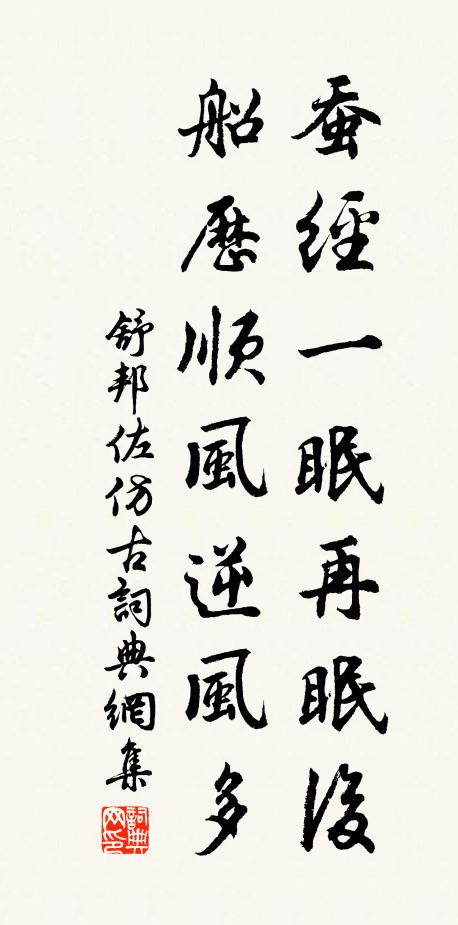 蚕經一眠再眠後
船歷順風逆風多
舒邦佐仿古詞典網集
詞典网印